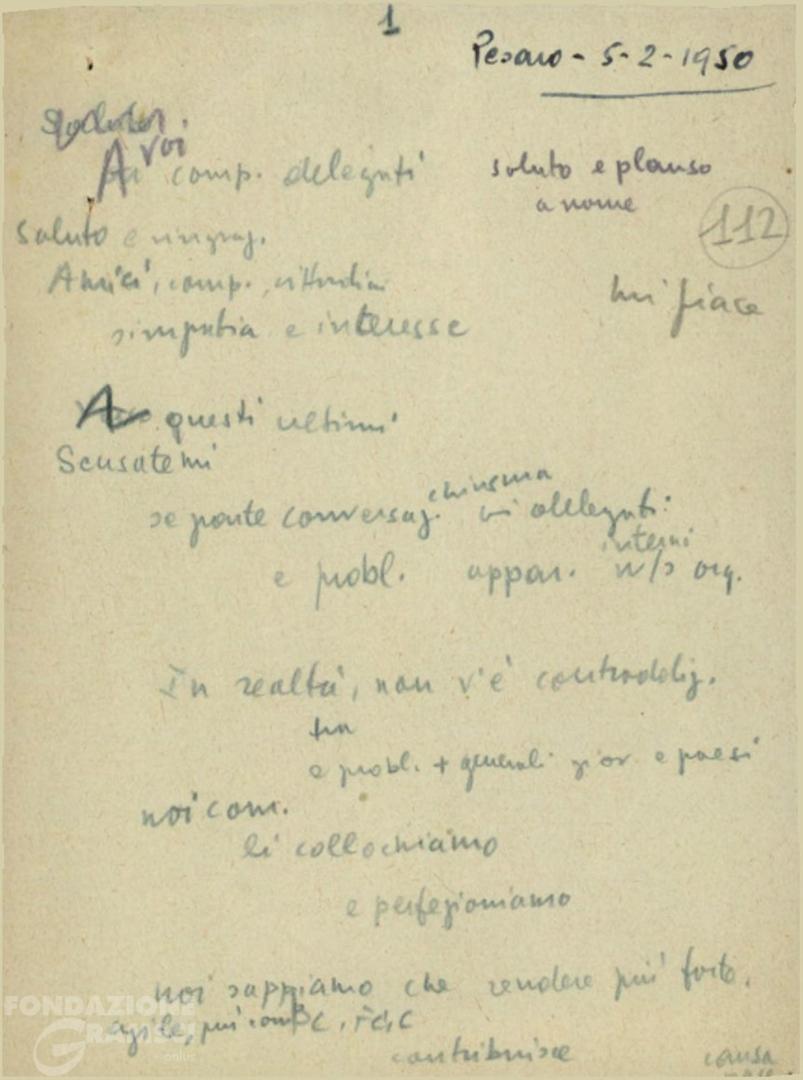 1
Pesaro - 5-2-1950
Saluto.
A voi comp. delegati
saluto e plauso
a nome
112
saluto e ringraz.
Amici, comp., cittadini
mi piace
simpatia e interesse
A questi ultimi
Scusatemi
se parte conversaz. chiusma ai delegati
e probl. appar. interni n/s org.
In realtà, non v'è contraddiz.
tra
e probl. + generali gior e paesi
noi com.
li collochiamo
e perfezioniamo
noi sappiamo che rendere più forte,
agile, più comb PC, FGC
contribuisce
causa
pace
FONDAZIONE
GRAMSCI
onlus